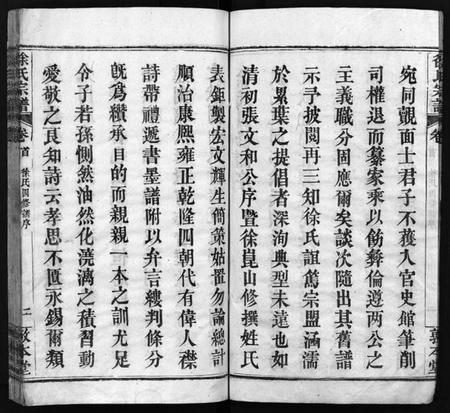 宛同覿面士君子不獲入官史館筆削
司權退而纂家乘以飭彝倫遵兩公之
主義職分固應爾矣談次隨出其舊譜
示予披閱再三知徐氏誼篤宗盟涵濡
於累葉之提倡者深洵典型未遠也如
清初張文和公序暨徐崑山修撰姓氏
表鉅製宏文輝生簡策姑置勿論總計
順治康熙雍正乾隆四朝代有偉人襟
詩帶禮遞書墨譜附以弁言縷判條分
旣爲纘承目的而親親一本之訓尤足
令子若孫惻然油然化澆漓之積習動
愛敬之良知詩云孝思不匱永錫爾類
徐氏宗譜 卷首 徐氏四修譜序 二 敦本堂
徐氏宗譜 卷 敦本堂